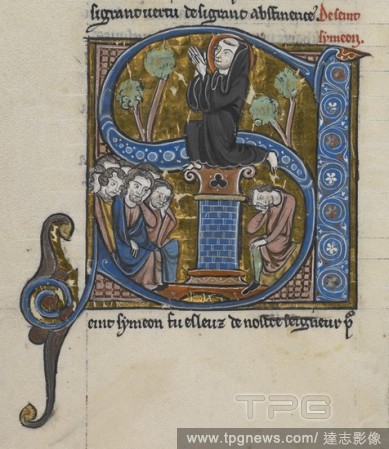 si grant vertu de si grant abstinence De seint
symeon.
S
eint symeon fu esleuz de nostre seigneur
TPG
www.tpgnews.com/ 達志影像